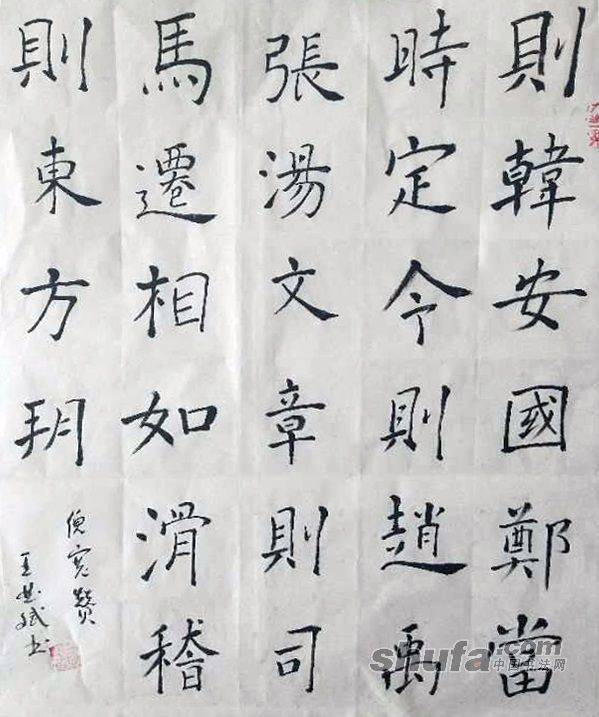 則韓安國鄭當
時定令則趙禹
張湯文章則司
馬遷相如滑稽
則東方朔
倪寬贊
shufa.com
中国书法网